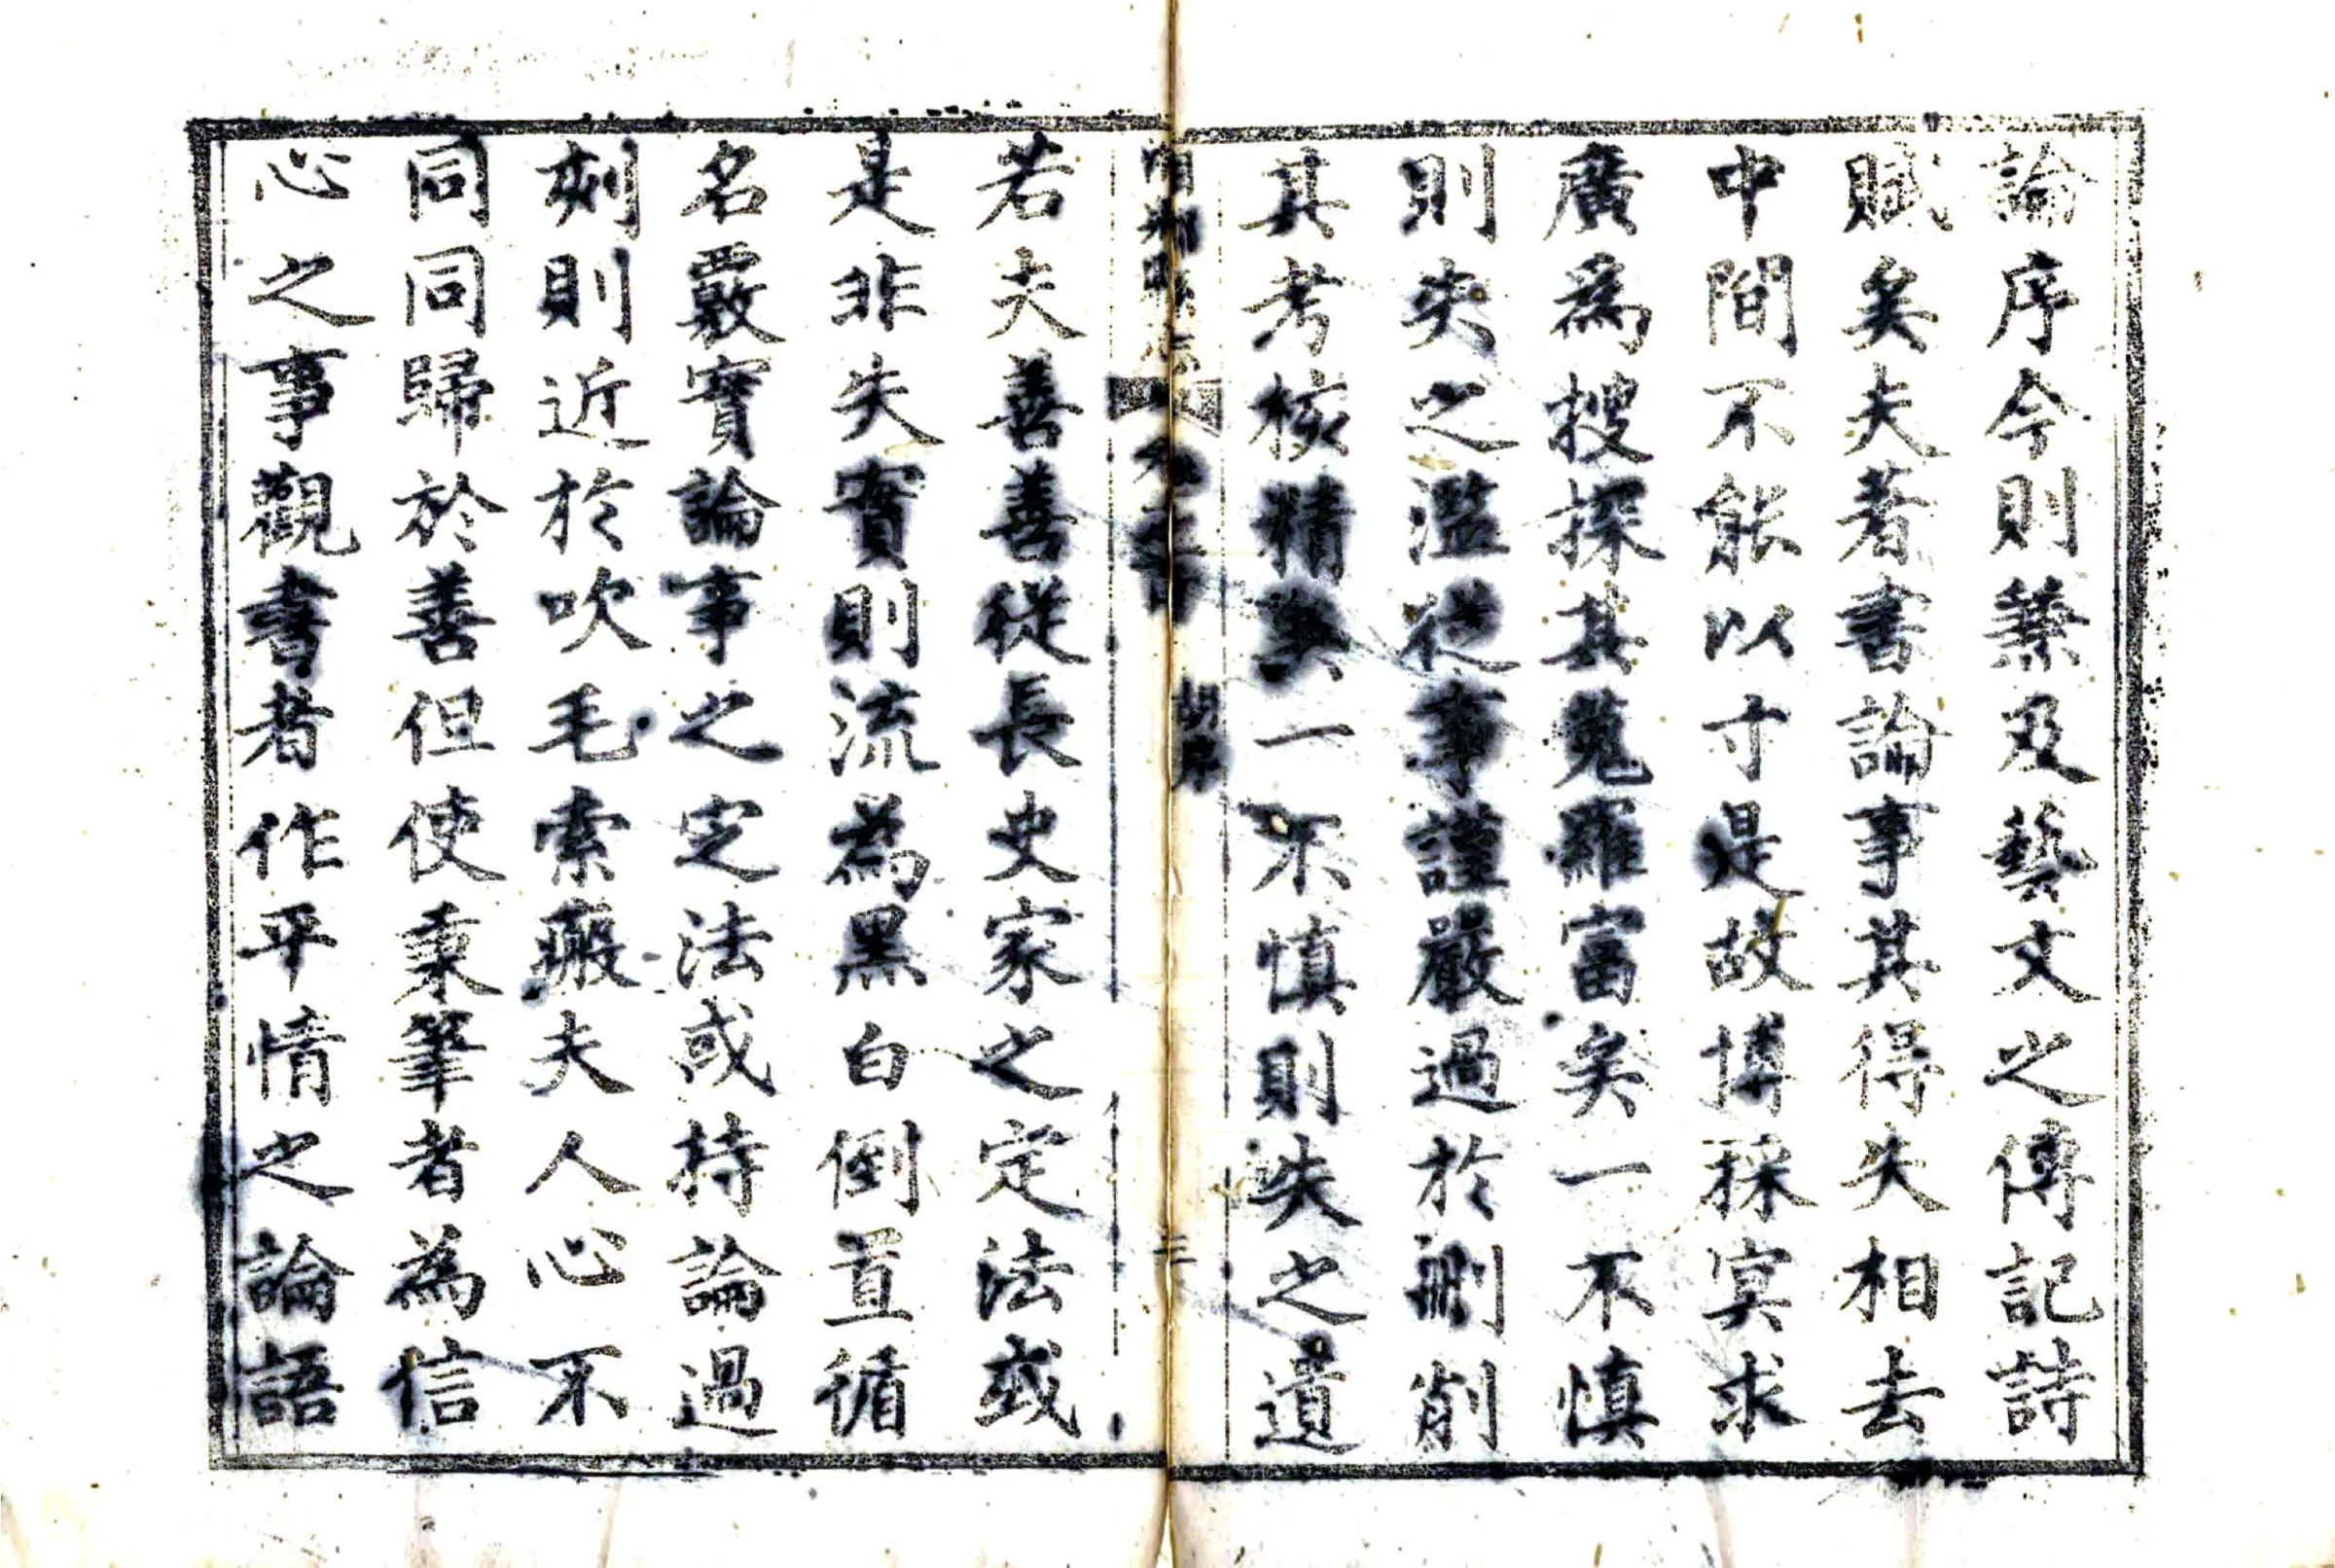 論序今則蒹及藝文之傳記詩
賦矣夫著書論事其得失相去
中間不能以寸是故博採冥求
廣爲搜探其蒐羅富矣一不慎
則失之濫從事謹嚴過於刪削
其考核精矣一不慎則失之遺
胡序
三
若夫善善從長史家之定法或
是非失實則流為黑白倒置循
名覈實論事之定法或持論過
刻則近於吹毛索瘢夫人心不
同同歸於善但使秉筆者為信
心之事觀書者作平情之論語